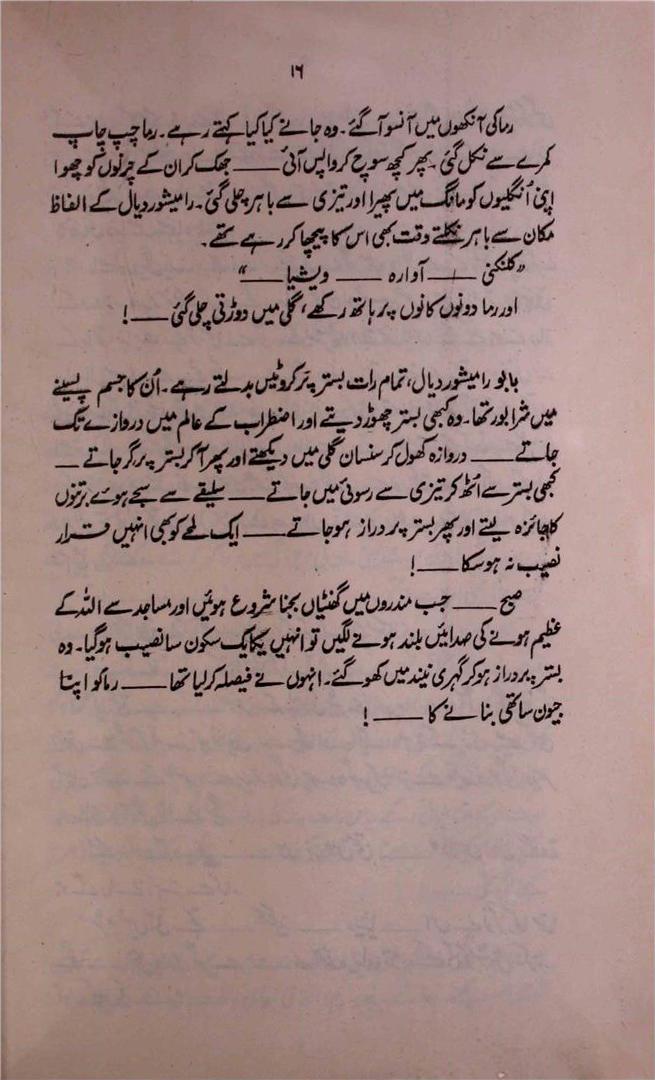 ۱۶
رما کی آنکھوں میں آنسو آ گئے۔ وہ جانے کیا کیا کہتے رہے۔ رما چپ چاپ
کمرے سے نکل گئی۔ پھر کچھ سوچ کر واپس آئی ــــ جھک کر ان کے چرنوں کو چھوا
اپنی اُنگلیوں کو مانگ میں پھیرا اور تیزی سے باہر چلی گئی۔ رامیشور دیال کے الفاظ
مکان سے باہر نکلتے وقت بھی اس کا پیچھا کر رہے تھے۔
"کلنکنی ــــ آوارہ ــــ ویشیا ــــ"
اور رما دونوں کانوں پر ہاتھ رکھے، گلی میں دوڑتی چلی گئی ــــ!
بابو رامیشور دیال، تمام رات بستر پر کروٹیں بدلتے رہے۔ اُن کا جسم پسینے
میں شرابور تھا۔ وہ کبھی بستر چھوڑ دیتے اور اضطراب کے عالم میں دروازے تک
جاتے ــــ دروازہ کھول کر سنسان گلی میں دیکھتے اور پھر آ کر بستر پر گر جاتے ــــ
کبھی بستر سے اُٹھ کر تیزی سے رسوئی میں جاتے ــــ سلیقے سے سجے ہوئے برتنوں
کا جائزہ لیتے اور پھر بستر پر دراز ہو جاتے ــــ ایک لمحے کو بھی انہیں قرار
نصیب نہ ہو سکا ــــ!
صبح ــــ جب مندروں میں گھنٹیاں بجنا شروع ہوئیں اور مساجد سے اللہ کے
عظیم ہونے کی صدائیں بلند ہونے لگیں تو انہیں یکایک سکون سا نصیب ہو گیا۔ وہ
بستر پر دراز ہو کر گہری نیند میں کھو گئے۔ انہوں نے فیصلہ کر لیا تھا ــــ رما کو اپنا
جیون ساتھی بنانے کا ــــ!